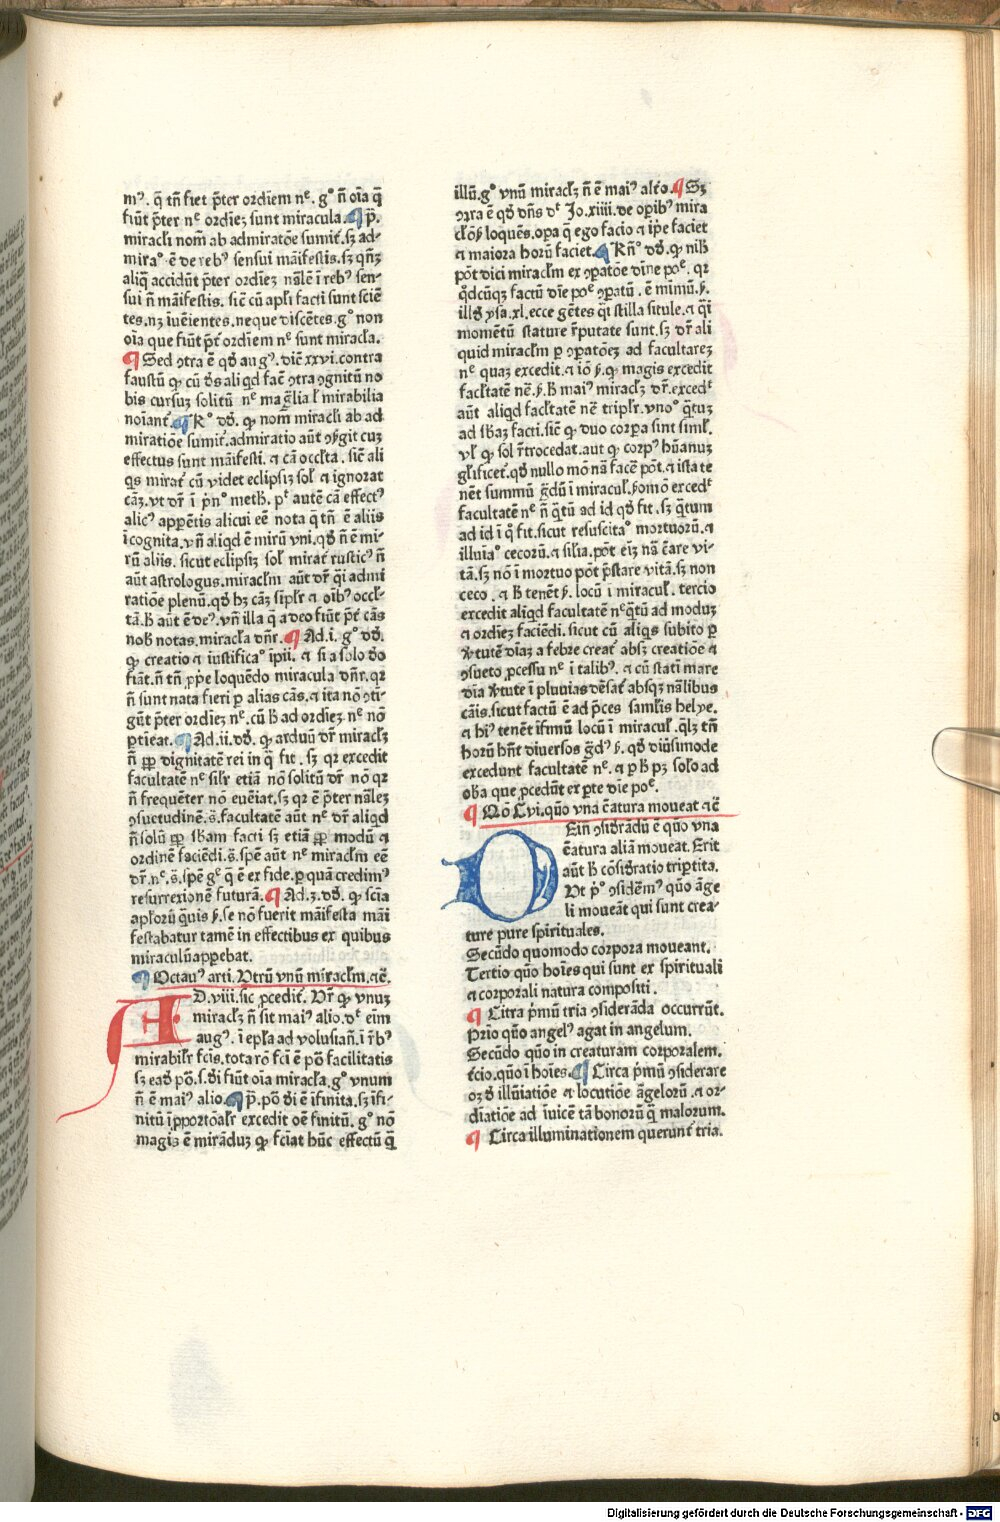 mꝰ. q̄ tñ fiet p̃ter ordiem nᵉ. gº ñ oīa q̄
fiūt p̃ter nᵉ ordieꝫ sunt miracula. ¶ p̄.
miracli nom̄ ab admiratōe sumit̃. sꝫ ad-
miraº ē de rebꝰ sensui māifestis. sꝫ qñꝫ
aliq̄ accidūt p̃ter ordieꝫ nãlē ī rebꝰ sen-
sui ñ māifestis. siē cū apłi facti sunt sciē
tes. nꝫ iuēientes. neque discētes. gº non
oīa que fiūt p̃t̃ ordiem nᵉ sunt miracła.
¶ Sed ꝯtra ē qð augꝰ. dic̄ xxvi. contra
faustū ꝙ cū ðs aliqd fac̄ ꝯtra ꝯgnitū no
bis cursuꝫ solitū nᵉ magłia ł mirabilia
noīant̃. ¶ Rº ðð. ꝙ nom̄ miracli ab ad
miratiōe sumit̃. admiratio aūt ꝯsurgit cuꝫ
effectus sunt māifesti. ⁊ cā occłta. siē ali
qs mirat̃ cū videt eclipsiꝫ soł ⁊ ignorat
cāꝫ. vt dr̄ ī p̃nº metħ. pᵗ autē cā effectꝰ
alicꝰ appētis alicui eē nota q̄ tñ ē aliis
īcognita. vñ aliqd ē mirū vni. qð ñ ē mi-
rū aliis. sicut eclipsiꝫ soł mirat̃ rusticꝰ ñ
aūt astrologus. miracłm aūt dr̄ q̄i admi
ratiōe plenū. qð hꝫ cāꝫ siplr̃ ⁊ oībꝰ occł-
tā. ħ aūt ē deꝰ. vñ illa q̄ a deo fiūt p̃t̃ cās
nob̄ notas. miracła dñr. ¶ Ad. i. gº ðð.
ꝙ creatio ⁊ iustificaº ipii. ⁊ si a solo ðo
fiāt. ñ tñ ꝓpe loquēdo miracula dñr. qꝛ
ñ sunt nata fieri ꝑ alias cās. ⁊ ita nō ꝯti-
gūt p̃ter ordieꝫ nᵉ. cū ħ ad ordieꝫ nᵉ nō
ꝑtieāt. ¶ Ad. ii. ðð. ꝙ arduū dr̄ miracłꝫ
ñ ꝓp̄ dignitatē rei in q̄ fit. sꝫ qꝛ excedit
facultatē nᵉ silr̃ etiā nō solitū dr̄ nō qꝛ
ñ frequēter nō euēiat. sꝫ qꝛ ē p̃ter nãleꝫ
ꝯsuetudinē. s̄. facultatē aūt nᵉ dr̄ aliqd
ñ solū ꝓp̄ sbam facti sꝫ etiā ꝓp̄ modū ⁊
ordinē faciēdi. s̄. spē aūt nᵉ miracłm eē
dr̄. nᵉ. s̄. spē gᵉ q̄ ē ex fide. ꝑ quā credimꝰ
resurrexionē futurā. ¶ Ad. 3. ðð. ꝙ scīa
apłorū q̄uis ꝑ. se nō fuerit māifesta māi
festabatur tamē in effectibus ex quibus
miraculū apꝑebat.
¶ Octauꝰ arti. Vtrū vnū miracłm. ⁊c̄.
AD. viii. sic ꝓcedit̃. Vr̄ ꝙ vnuꝫ
miraclꝫ ñ sit maiꝰ alio. dᵗ eīm
augꝰ. ī epła ad volusiañ. ī r̄bꝰ
mirabilr̃ fcīs. tota rō fcī ē pō facilitatis
sꝫ eað pō. s. ði fiūt oīa miracła. gº vnum
ñ ē maiꝰ alio. ¶ p̄. pō ði ē īfinita. sꝫ īfi-
nitū īꝓportōałr excedit oē finitū. gº nō
magis ē mirāduꝫ ꝙ fciat hūc effectū q̄
illū. gº vnū miraclꝫ ñ ē maiꝰ alio. ¶ Sꝫ
ꝯtra ē qð dñs dᵗ Jo. xiiii. de opibꝰ mira
cłoꝝ loquēs. opa q̄ ego facio ⁊ ip̄e faciet
⁊ maiora horū faciet. ¶ Rñº ðð. ꝙ nih̄
pōt dici miracłm ex ꝯpatōe dīne poᵉ. qꝛ
q̄dcūqꝫ factū dīe poᵉ ꝯpatū. ē mimū. ꝑ.
illð ysa. xl. ecce gētes q̄i stilla situle. ⁊ q̄i
momētū stature r̄putate sunt. sꝫ dr̄ ali
quid miracłm ꝑ ꝯpatōeꝫ ad facultateꝫ
nᵉ quaꝫ excedit. ⁊ iō ꝑ. ꝙ magis excedit
facłtatē nē. ꝑ. ħ maiꝰ miraclꝫ dr̄. excedᵗ
aūt aliqd facłtatē nē triplr̃. vnoº q̄tuꝫ
ad sbaꝫ facti. siē ꝙ duo corpa sint simł.
vł ꝙ sol r̄trocedat. aut ꝙ corpꝰ hūanuꝫ
głificet̃. qð nullo mō nā facē pōt. ⁊ ista te
nēt summū g̃dū ī miracuł. ꝑ omō excedᵗ
facultatē nᵉ ñ q̄tū ad id qð fit. sꝫ q̄tum
ad id ī q̄ fit. sicut resuscitaº mortuorū. ⁊
illuiaº cecorū. ⁊ silia. pōt eiꝫ nā c̄are vi-
tā. sꝫ nō ī mortuo pōt p̃stare vitā. sꝫ non
ceco. ⁊ ħ tenēt ꝑ. locū ī miracuł. tercio
excedit aliqd facultatē nᵉ q̄tū ad moduꝫ
⁊ ordieꝫ faciēdi. sicut cū aliqs subito ꝑ
v̄tutē dīaꝫ a febre creat̃ absꝫ creatiōe ⁊
ꝯsueto ꝓcessu nᵉ ī talibꝰ. ⁊ cū statī mare
dīa v̄tute ī pluuias dēsat̃ absqꝫ nãlibus
cāis. sicut factū ē ad p̃ces samłis helye.
⁊ hiꝰ tenēt īfimū locū ī miracuł. qłꝫ tñ
horū hñt diuersos g̃dꝰ ꝑ. qð diūsimode
excedunt facultatē nᵉ. ⁊ ꝑ ħ pꝫ soło ad
oba que ꝓcedūt ex ꝑte dīe poᵉ.
¶ Nō Cvi. quō vna c̄atura moueat ⁊c̄
DEiñ ꝯsiðrādū ē quō vna
c̄atura aliā moueat. Erit
aūt ħ cōsiðratio triꝑtita.
Vt pº ꝯsidēmꝰ quō āge
li moueāt qui sunt crea-
ture pure spirituales.
Secūdo quomodo corpora moueant.
Tertio quō hoīes qui sunt ex spirituali
⁊ corporali natura compositi.
¶ Citra p̄mū tria ꝯsiderāda occurrūt.
Prīo quō angelꝰ agat in angelum.
Secūdo quō in creaturam corporalem.
t̄cio. quō ī hoīes. ¶ Circa p̄mū ꝯsiderare
oꝫ ð illūīatiōe ⁊ locutiōe āgelorū. ⁊ or-
dīatiōe ad iuicē tā bonorū q̄ malorum.
¶ Circa illuminationem querunt̃ tria.
Digitalisierung gefördert durch die Deutsche Forschungsgemeinschaft - DFG